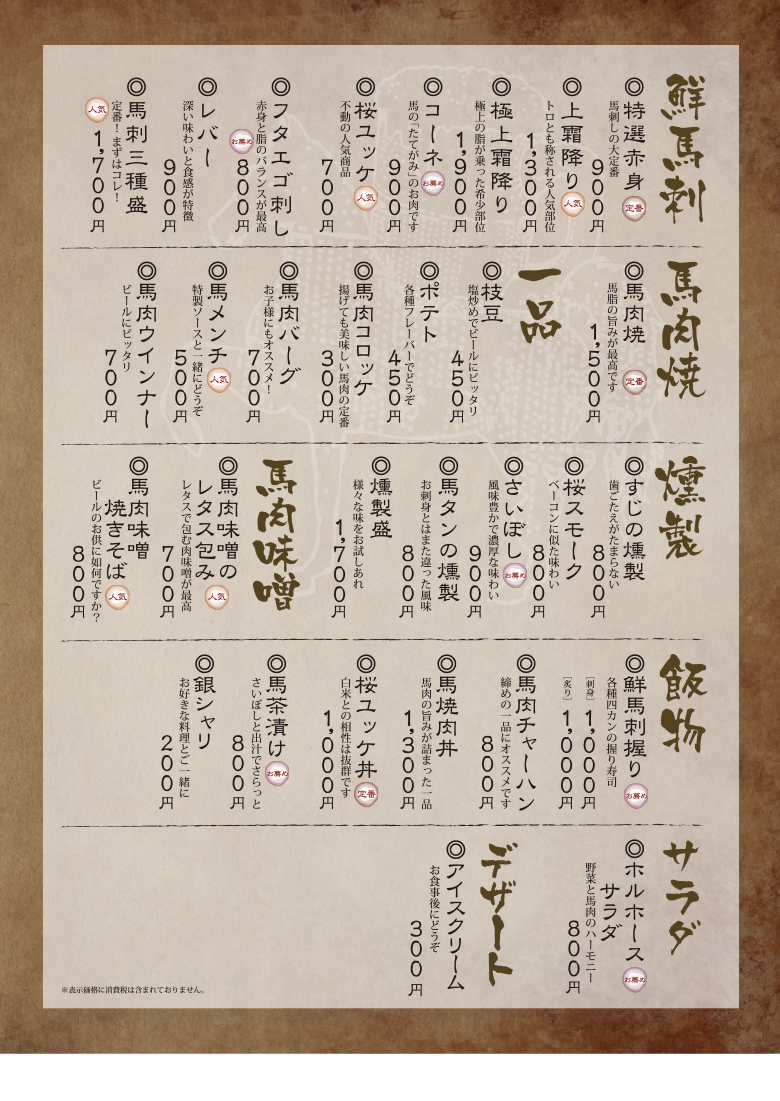 鮮馬刺
◎特選赤身 定番
馬刺しの大定番
900円
◎上霜降り 人気
トロとも称される人気部位
1,300円
◎極上霜降り
極上の脂が乗った希少部位
1,900円
◎コーネ お薦め
馬の「たてがみ」のお肉です
900円
◎桜ユッケ 人気
不動の人気商品
700円
◎フタエゴ刺し
赤身と脂のバランスが最高
お薦め
800円
◎レバー
深い味わいと食感が特徴
900円
◎馬刺三種盛
定番!まずはコレ!
人気
1,700円
馬肉焼
◎馬肉焼 定番
馬脂の旨みが最高です
1,500円
一品
◎枝豆
塩炒めでビールにピッタリ
450円
◎ポテト
各種フレーバーでどうぞ
450円
◎馬肉コロッケ
揚げても美味しい馬肉の定番
300円
◎馬肉バーグ
お子様にもオススメ!
700円
◎馬メンチ 人気
特製ソースと一緒にどうぞ
500円
◎馬肉ウインナー
ビールにピッタリ
700円
燻製
◎すじの燻製
歯ごたえがたまらない
800円
◎桜スモーク
ベーコンに似た味わい
800円
◎さいぼし お薦め
風味豊かで濃厚な味わい
900円
◎馬タンの燻製
お刺身とはまた違った風味
800円
◎燻製盛
様々な味をお試しあれ
1,700円
馬肉味噌
◎馬肉味噌の
レタス包み 人気
レタスで包む肉味噌が最高
700円
◎馬肉味噌
焼きそば 人気
ビールのお供に如何ですか?
800円
飯物
◎鮮馬刺握り お薦め
各種四カンの握り寿司
[刺身] 1,000円
[炙り] 1,000円
◎馬肉チャーハン
締めの一品にオススメです
800円
◎馬焼肉丼
馬肉の旨みが詰まった一品
1,300円
◎桜ユッケ丼 定番
白米との相性は抜群です
1,000円
◎馬茶漬け お薦め
さいぼしと出汁でさらっと
800円
◎銀シャリ
お好きな料理とご一緒に
200円
サラダ
◎ホルホース
サラダ お薦め
野菜と馬肉のハーモニー
800円
デザート
◎アイスクリーム
お食事後にどうぞ
300円
※表示価格に消費税は含まれておりません。